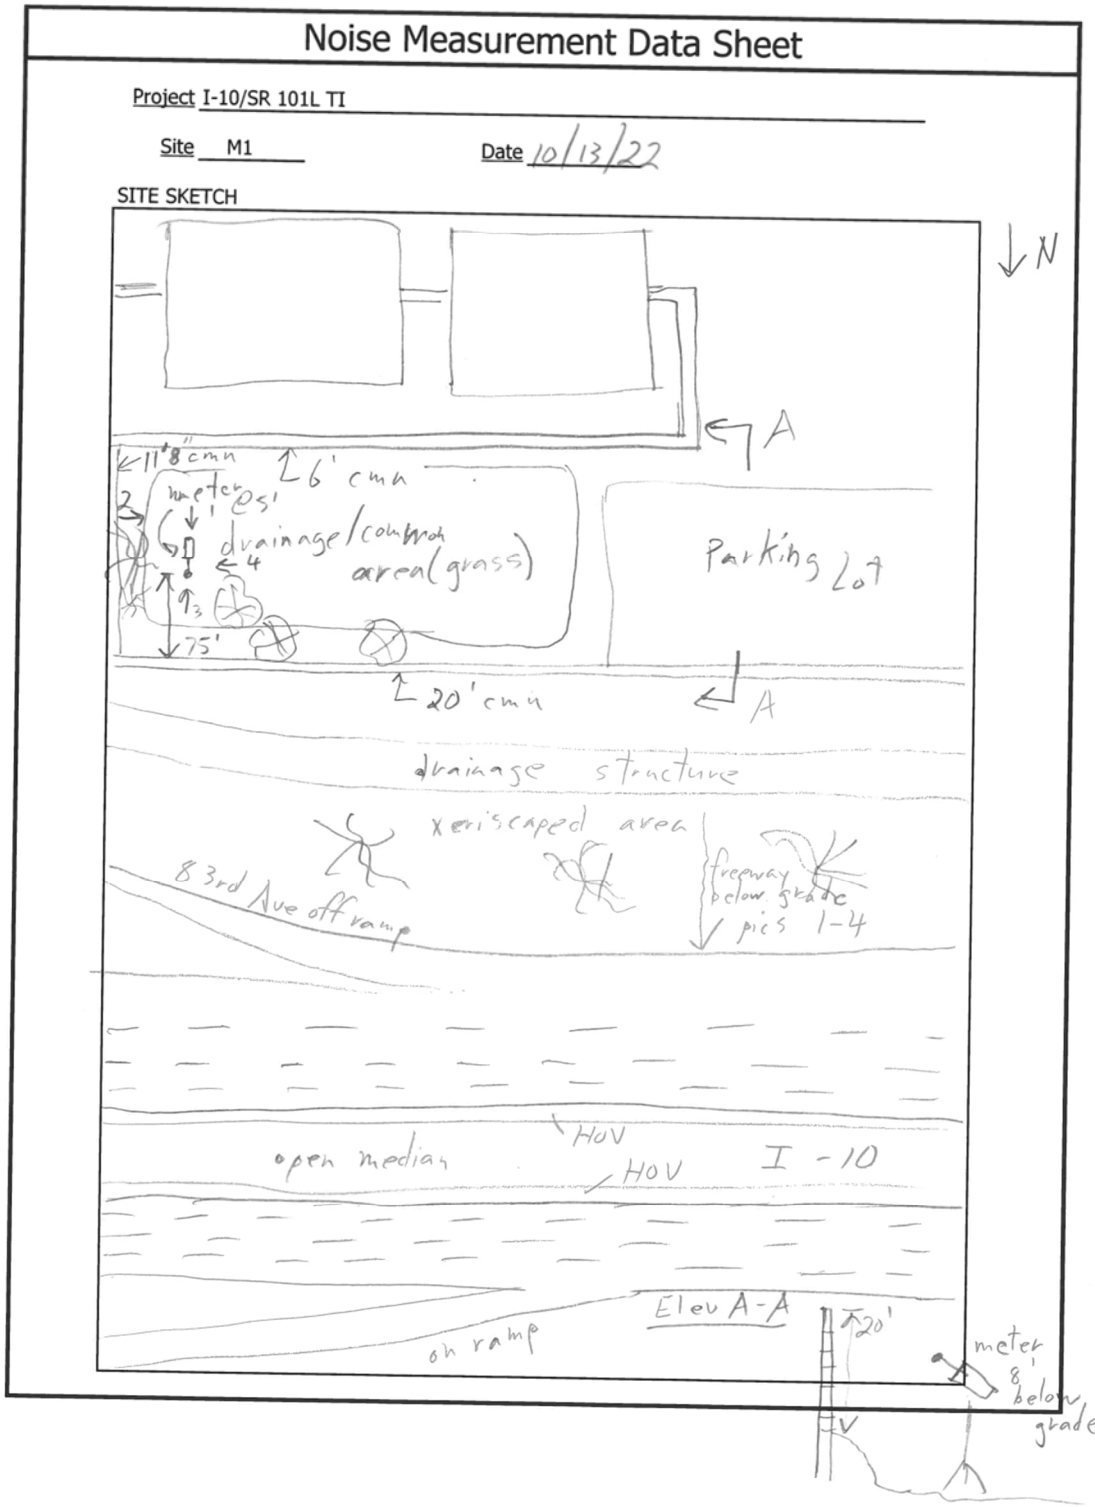 Noise Measurement Data Sheet
Project I-10/SR 101L TI
Site M1 Date 10/13/22
SITE SKETCH
N
A
11'8" cmu
6' cmu
meter
@5'
2
1
drainage/common
area (grass)
4
3
75'
Parking Lot
20' cmu
A
drainage structure
xeriscaped area
83rd Ave off ramp
freeway
below grade
pics 1-4
HOV
open median
HOV
I-10
on ramp
Elev A-A
20'
meter
8'
below
grade